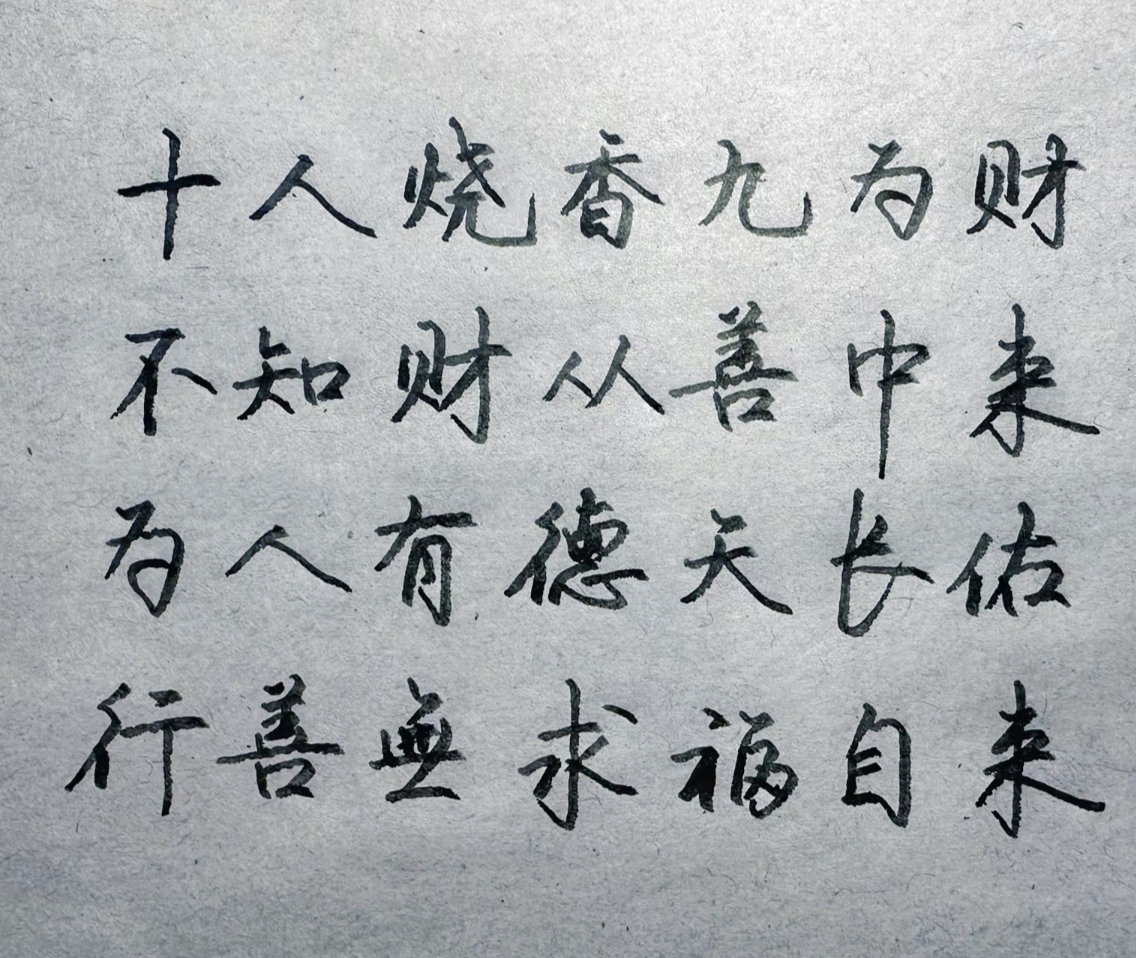 十人烧香九为财
不知财从善中来
为人有德天长佑
行善無求福自来